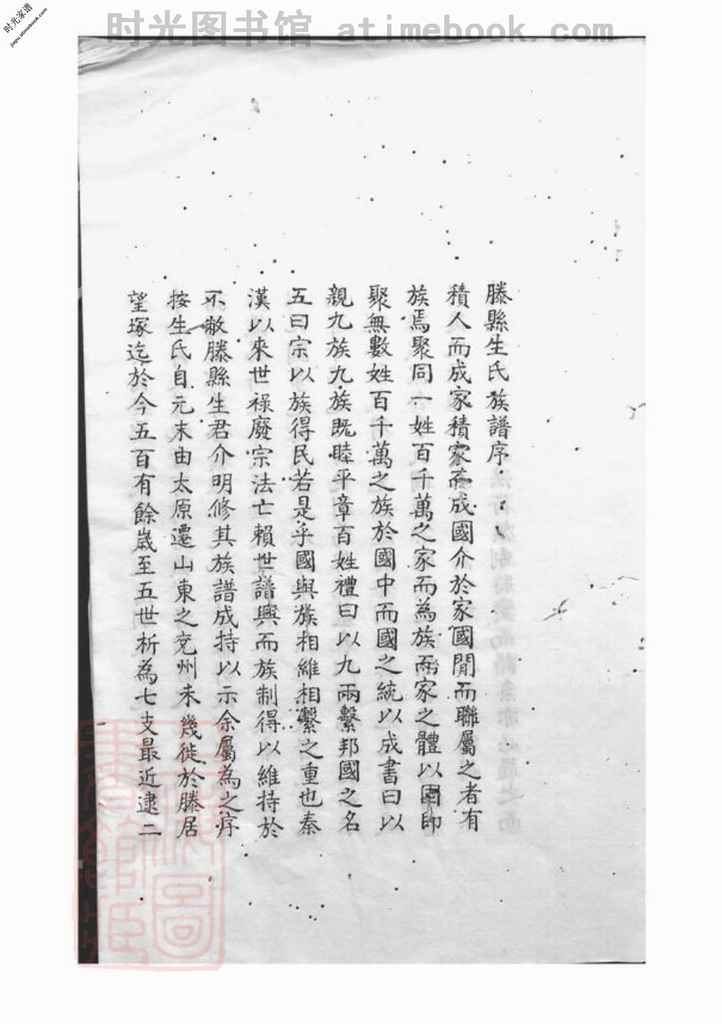 时光图书馆 atimebook.com
时光家谱
jiapu.atimebook.com
滕縣生氏族譜序
積人而成家積家而成國介於家國間而聯屬之者有
族焉聚同一姓百千萬之家而為族而家之體以固即
聚無數姓百千萬之族於國中而國之統以成書曰以
親九族九族既睦平章百姓禮曰以九兩繫邦國之名
五曰宗以族得民若是乎國與族相維相繫之重也秦
漢以來世祿廢宗法亡賴世譜興而族制得以維持於
不敝滕縣生君介明修其族譜成持以示余屬為之序
按生氏自元末由太原遷山東之兗州未幾徙於滕居
望塚迄於今五百有餘歲至五世析為七支最近逮二